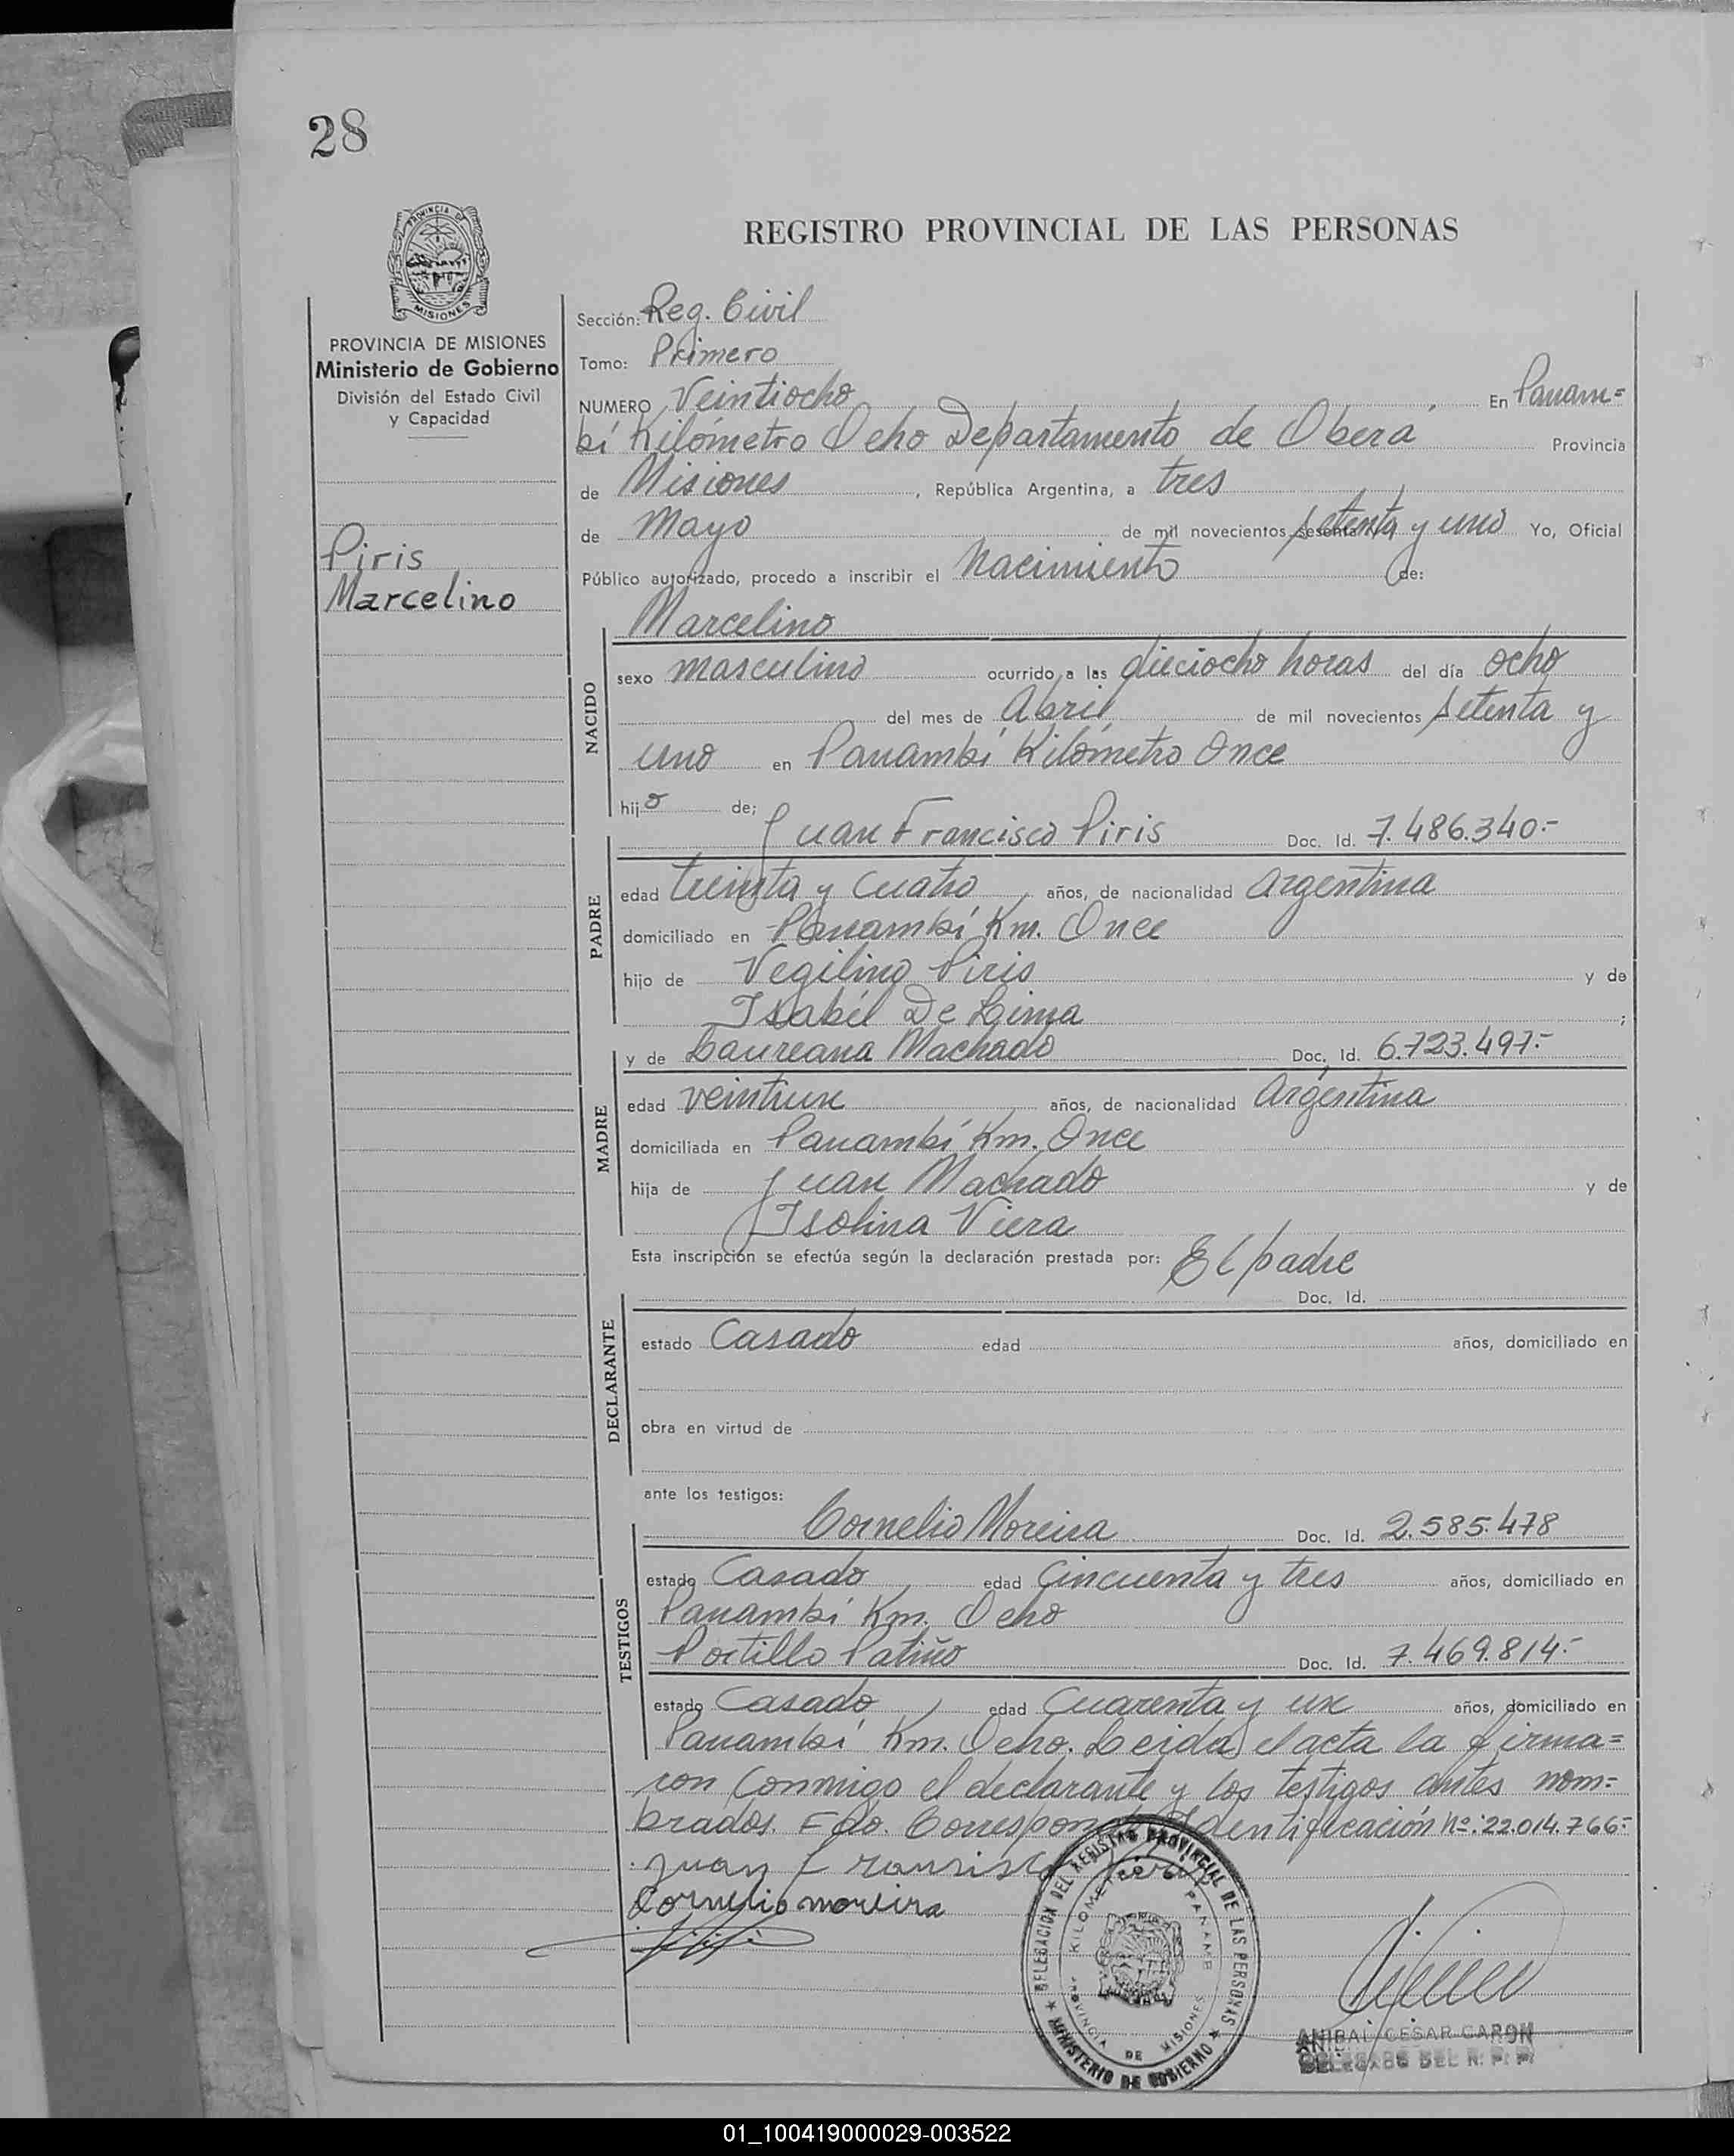 28
PROVINCIA DE
MISIONES
REGISTRO PROVINCIAL DE LAS PERSONAS
PROVINCIA DE MISIONES
Ministerio de Gobierno
División del Estado Civil
y Capacidad
Piris
Marcelino
Sección: Reg. Civil
Tomo: Primero
NUMERO Veintiocho En Panam=
bí Kilómetro Ocho Departamento de Oberá Provincia
de Misiones, República Argentina, a tres
de Mayo de mil novecientos sesenta setenta y uno Yo, Oficial
Público autorizado, procedo a inscribir el Nacimiento de:
Marcelino
NACIDO
sexo masculino ocurrido a las dieciocho horas del día ocho
del mes de Abril de mil novecientos setenta y
uno en Panambí Kilómetro Once
hijo de;
Juan Francisco Piris Doc. Id. 7.486.340.-
PADRE
edad treinta y cuatro años, de nacionalidad argentina
domiciliado en Panambí Km. Once
hijo de Vegilino Piris y de
Isabél De Lima ;
y de Laureana Machado Doc. Id. 6.723.497.-
MADRE
edad veintiun años, de nacionalidad Argentina
domiciliada en Panambí Km. Once
hija de Juan Machado y de
Isolina Viera
Esta inscripción se efectúa según la declaración prestada por: El padre
Doc. Id.
DECLARANTE
estado Casado edad años, domiciliado en
obra en virtud de
ante los testigos:
Cornelio Moreira Doc. Id. 2.585.478
TESTIGOS
estado Casado edad Cincuenta y tres años, domiciliado en
Panambí Km. Ocho
Portillo Patiño Doc. Id. 7.469.814.-
estado Casado edad Cuarenta y un años, domiciliado en
Panambí Km. Ocho. Leida el acta la firma=
ron conmigo el declarante y los testigos antes nom=
brados. Fdo. Correspon Identificación Nº: 22.014.766.-
Juan Fransisco Piris
Cornelio moreira
DELEGACION DEL REGISTRO PROVINCIAL DE LAS PERSONAS
KILOMETRO 8 PANAMBI
PROVINCIA DE MISIONES
MINISTERIO DE GOBIERNO
ANIBAL CESAR CARON
DELEGADO DEL R. P. P.
01_100419000029-003522